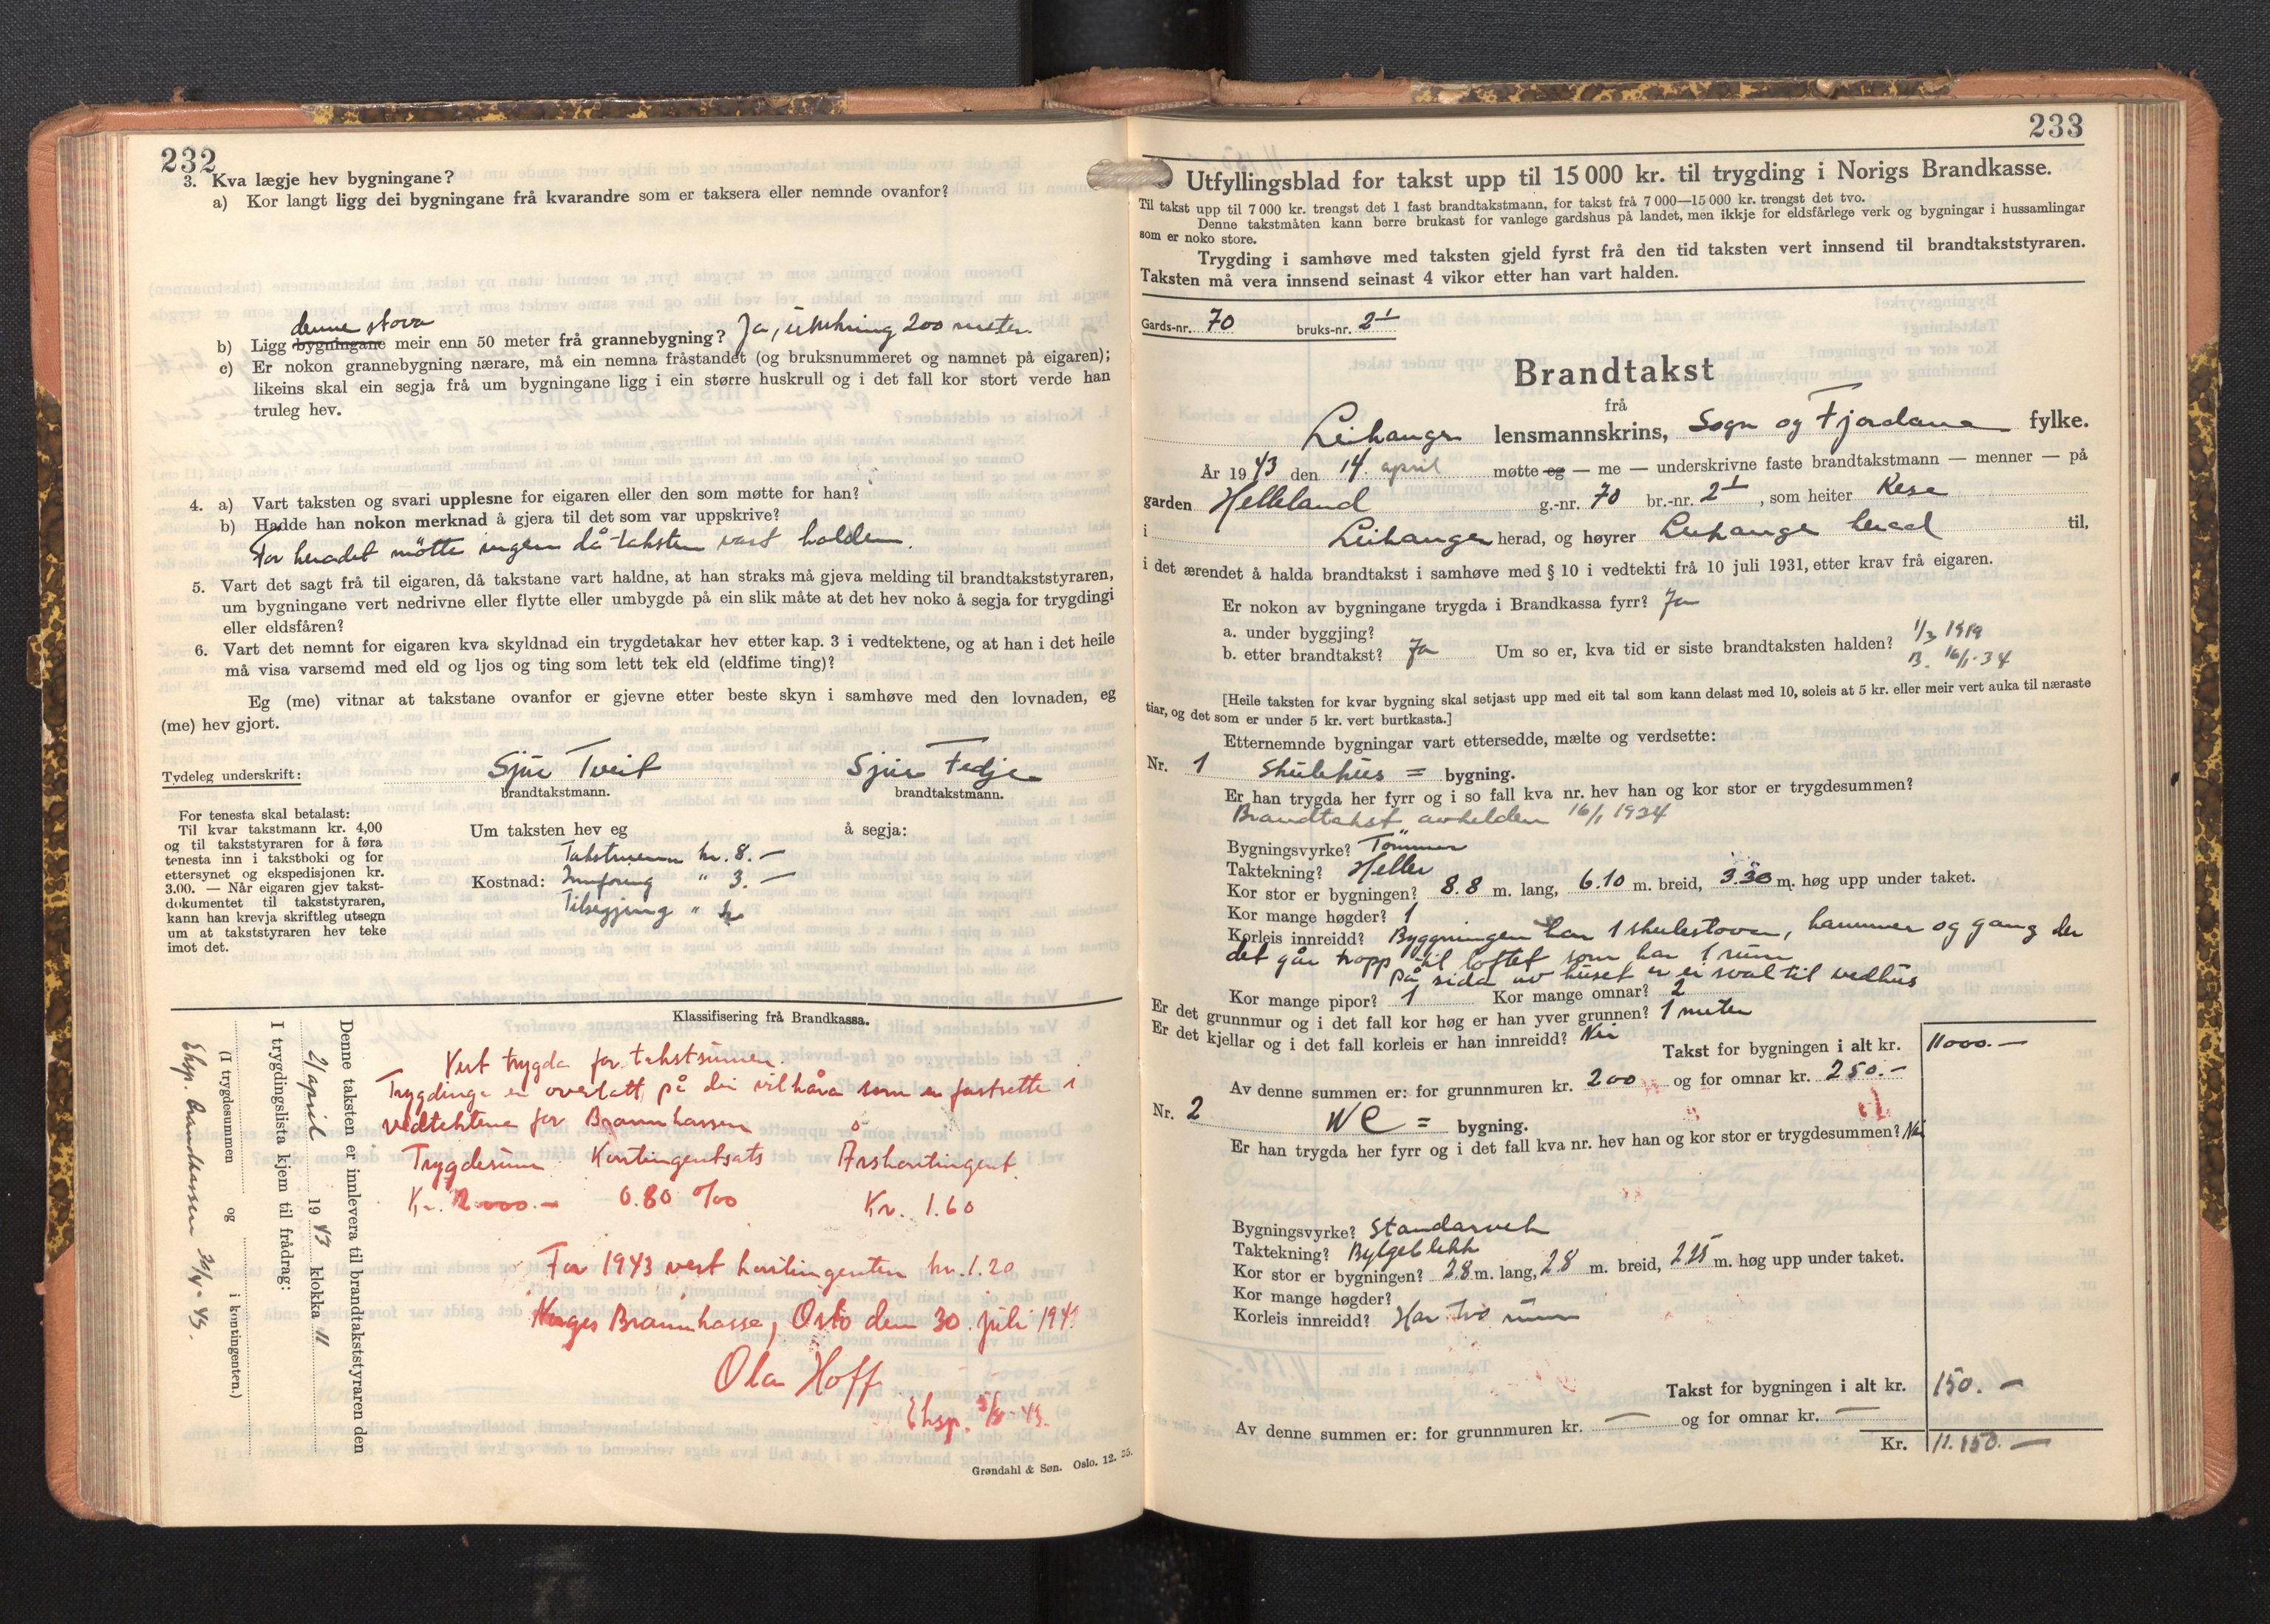 232
3. Kva lægje hev bygningane?
a) Kor langt ligg dei bygningane frå kvarandre som er taksera eller nemnde ovanfor?
denne stova
b) Ligg bygningane meir enn 50 meter frå grannebygning? Ja, umkring 200 meter.
c) Er nokon grannebygning nærare, må ein nemna fråstandet (og bruksnummeret og namnet på eigaren);
likeins skal ein segja frå um bygningane ligg i ein større huskrull og i det fall kor stort verde han
truleg hev.
4. a) Vart taksten og svari upplesne for eigaren eller den som møtte for han?
b) Hadde han nokon merknad å gjera til det som var uppskrive?
For heradet møtte ingen då taksten vart halden.
5. Vart det sagt frå til eigaren, då takstane vart haldne, at han straks må gjeva melding til brandtakststyraren,
um bygningane vert nedrivne eller flytte eller umbygde på ein slik måte at det hev noko å segja for trygdingi
eller eldsfåren?
6. Vart det nemnt for eigaren kva skyldnad ein trygdetakar hev etter kap. 3 i vedtektene, og at han i det heile
må visa varsemd med eld og ljos og ting som lett tek eld (eldfime ting)?
Eg (me) vitnar at takstane ovanfor er gjevne etter beste skyn i samhøve med den lovnaden, eg
(me) hev gjort.
Tydeleg underskrift: Sjur Tveit Sjur Fedje
brandtakstmann. brandtakstmann.
For tenesta skal betalast:
Til kvar takstmann kr. 4,00
og til takststyraren for å føra
tenesta inn i takstboki og for
ettersynet og ekspedisjonen kr.
3.00. — Når eigaren gjev takst-
dokumentet til takststyraren,
kann han krevja skriftleg utsegn
um at takststyraren hev teke
imot det.
Um taksten hev eg å segja:
Takstmenn kr. 8.—
Kostnad: Innføring " 3.—
Tilsegjing "
Klassifisering frå Brandkassa.
Vert trygda for takstsumen.
Trygdinga er overlatt på dei vilkåra som er fastsette i
vedtektene for Brannkassen
Trygdesum Kontingentsats Årskontingent
Kr. 2000.— 0.80 ‰ Kr. 1.60
For 1943 vert kontingenten kr. 1.20
Norges Brannkasse, Oslo den 30. juli 1943
Ola Hoff
Eksp. 5/8-43.
Denne taksten er innlevera til brandtakststyraren den
21 april 1943 klokka 11
I trygdingslista kjem til frådrag:
(I trygdesummen og i kontingenten.)
Eksp. Brandkassen 30/4-43.
Grøndahl & Søn. Oslo. 12. 35.
233
Utfyllingsblad for takst upp til 15 000 kr. til trygding i Norigs Brandkasse.
Til takst upp til 7 000 kr. trengst det 1 fast brandtakstmann, for takst frå 7 000—15 000 kr. trengst det tvo.
Denne takstmåten kann berre brukast for vanlege gardshus på landet, men ikkje for eldsfårlege verk og bygningar i hussamlingar
som er noko store.
Trygding i samhøve med taksten gjeld fyrst frå den tid taksten vert innsend til brandtakststyraren.
Taksten må vera innsend seinast 4 vikor etter han vart halden.
Gards-nr. 70 bruks-nr. 2 1
Brandtakst
frå
Leikanger lensmannskrins, Sogn og Fjordane fylke.
År 1943 den 14. april møtte eg — me — underskrivne faste brandtakstmann — menner — på
garden Helleland g.-nr. 70 br.-nr. 2 1, som heiter Rese
i Leikanger herad, og høyrer Leikanger herad til,
i det ærendet å halda brandtakst i samhøve med § 10 i vedtekti frå 10 juli 1931, etter krav frå eigaren.
Er nokon av bygningane trygda i Brandkassa fyrr? Ja
a. under byggjing?
b. etter brandtakst? Ja Um so er, kva tid er siste brandtaksten halden? 1/3 1919
B. 16/1-34
[Heile taksten for kvar bygning skal setjast upp med eit tal som kann delast med 10, soleis at 5 kr. eller meir vert auka til næraste
tiar, og det som er under 5 kr. vert burtkasta.]
Etternemnde bygningar vart ettersedde, mælte og verdsette:
Nr. 1 Skulehus = bygning.
Er han trygda her fyrr og i so fall kva nr. hev han og kor stor er trygdesummen?
Brandtakst avhelden 16/1 1934
Bygningsvyrke? Tømmer
Taktekning? Heller
Kor stor er bygningen? 8.8 m. lang, 6.10 m. breid, 3.30 m. høg upp under taket.
Kor mange høgder? 1
Korleis innreidd? Byggningen har 1 skulestova, kammer og gang der
det går tropp til loftet som har 1 rum
På sida av huset er ei sval til vedhus
Kor mange pipor? 1 Kor mange omnar? 2
Er det grunnmur og i det fall kor høg er han yver grunnen? 1 meter
Er det kjellar og i det fall korleis er han innreidd? Nei
Takst for bygningen i alt kr. 11000.—
Av denne summen er: for grunnmuren kr. 200 og for omnar kr. 250.—
Nr. 2 WC = bygning.
Er han trygda her fyrr og i det fall kva nr. hev han og kor stor er trygdesummen? Nei
Bygningsvyrke? Standarverk
Taktekning? Bylgeblekk
Kor stor er bygningen? 2.8 m. lang, 2.8 m. breid, 2.25 m. høg upp under taket.
Kor mange høgder?
Korleis innreidd? Har two rum
Takst for bygningen i alt kr. 150.—
Av denne summen er: for grunnmuren kr. — og for omnar kr. —
Kr. 11.150.—